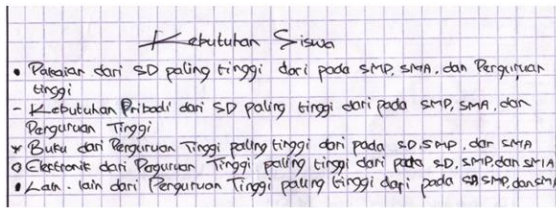 Kebutuhan Siswa
• Pakaian dari SD paling tinggi dari pada SMP, SMA, dan Perguruan
tinggi
- Kebutuhan Pribadi dari SD paling tinggi dari pada SMP, SMA, dan
Perguruan Tinggi
* Buku dari Perguruan Tinggi paling tinggi dari pada SD, SMP, dan SMA
o Elektronik dari Perguruan Tinggi paling tinggi dari pada SD, SMP, dan SMA
• Lain-lain dari Perguruan Tinggi paling tinggi dari pada SD SMP, dan SMA